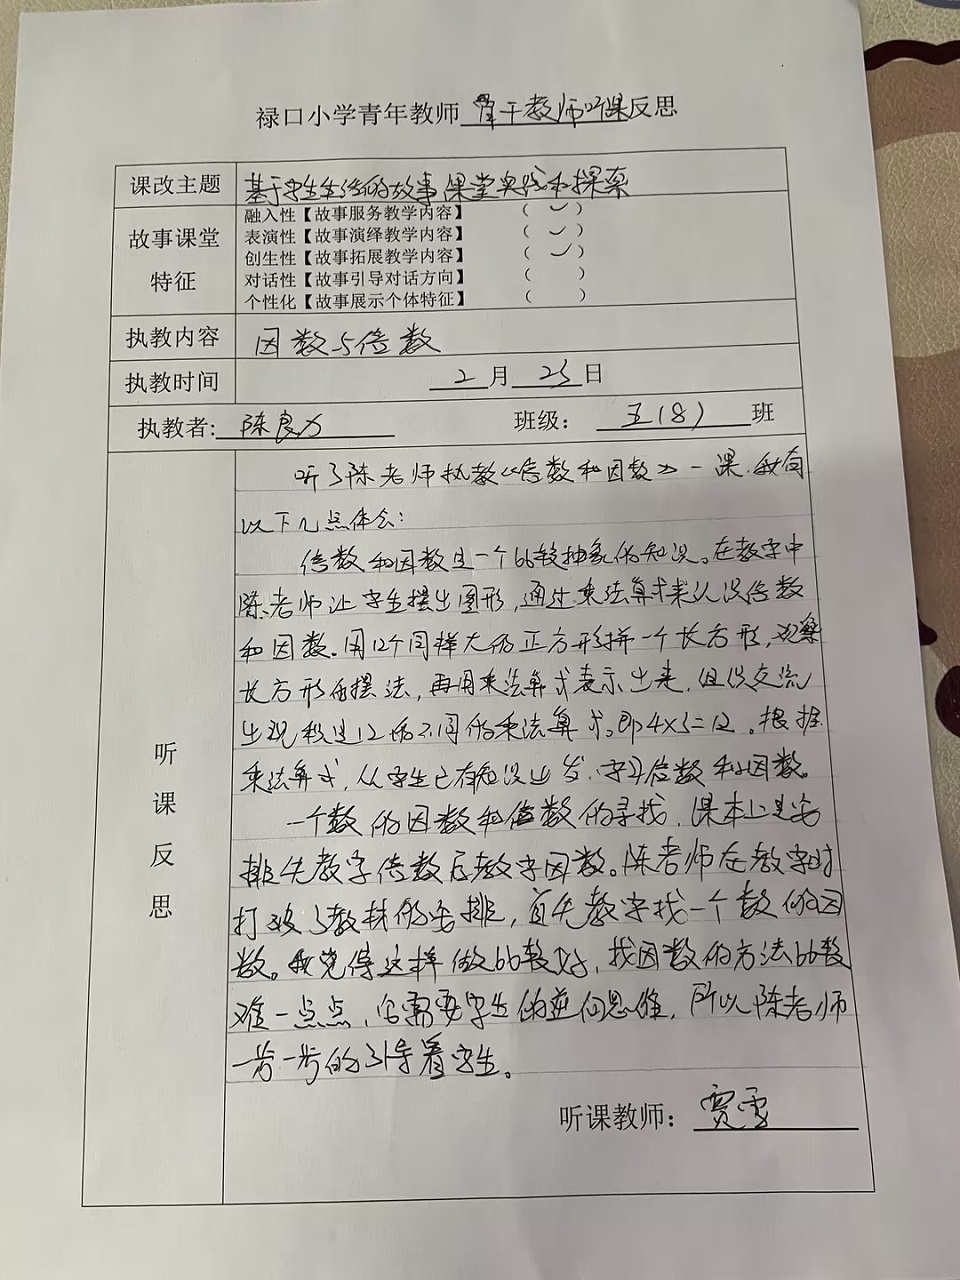 禄口小学青年教师骨干教师听课反思
课改主题 基于学生生活的故事课堂实践和探索
故事课堂特征
融入性【故事服务教学内容】 （ ✓ ）
表演性【故事演绎教学内容】 （ ✓ ）
创生性【故事拓展教学内容】 （ ✓ ）
对话性【故事引导对话方向】 （ ）
个性化【故事展示个体特征】 （ ）
执教内容 因数与倍数
执教时间 2月25日
执教者: 陈良力 班级： 五(8) 班
听课反思
听了陈老师执教《倍数和因数》一课，我有
以下几点体会：
倍数和因数是一个比较抽象的知识。在教学中
陈老师让学生摆出图形，通过乘法算式来认识倍数
和因数。用12个同样大的正方形拼一个长方形，观察
长方形的摆法，再用乘法算式表示出来，组织交流
出现积是12的不同的乘法算式。即4×3=12。根据
乘法算式，从学生已有知识出发，学习倍数和因数。
一个数的因数和倍数的寻找，课本上是安
排先教学倍数后教学因数。陈老师在教学时
打破了教材的安排，首先教学找一个数的因
数。我觉得这样做比较好，找因数的方法比较
难一点点，它需要学生的逆向思维，所以陈老师
一步一步的引导着学生。
听课教师： 贾雪